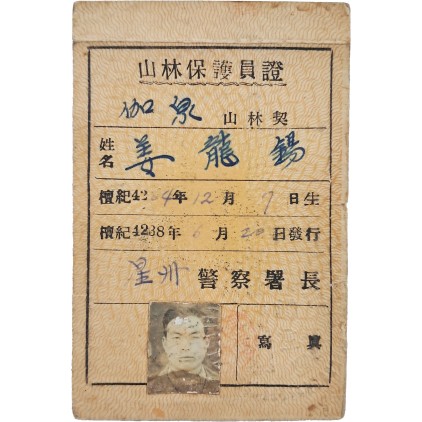 山林保護員證
伽泉 山林契
姓名 姜龍錫
檀紀4264年12月9日生
檀紀4288年6月20日發行
星州 警察署長
寫眞